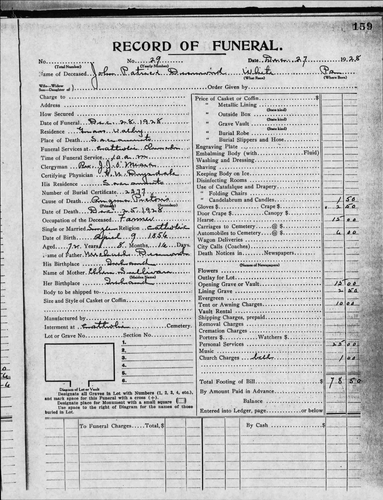 159
RECORD OF FUNERAL.
No. No. 29 Date 27 1928
(Total Number) (Yearly Number)
Name of Deceased John Patrick Dimmond White Pa
(What Race) (Where Born)
Order Given by
Charge to
Address
How Secured
Date of Funeral Dec. 28, 1928
Residence Grass Valley
Place of Death Sacramento
Funeral Services at Catholic Church
Time of Funeral Service 10 a.m.
Clergyman Rev. J. J.
Certifying Physician
His Residence Sacramento
Number of Burial Certificate 2237
Cause of Death Angina Pectoris
Date of Death Dec. 25, 1928
Occupation of Deceased Farmer
Single or Married Single Religion Catholic
Date of Birth April 9, 1856
Aged 72 Years 8 Months 16 Days
Name of Father Michael Dimmond
His Birthplace Ireland
Name of Mother Ellen Sullivan
(Maiden Name)
Her Birthplace Ireland
Body to be shipped to
Size and Style of Casket or Coffin
Manufactured by
Interment at Catholic Cemetery
Lot or Grave No. Section No.
1
2
3
4
5
6
7
8
Diagram of Lot or Vault
Designate all Graves in Lot with Numbers (1, 2, 3, 4, etc.),
and mark space for this Funeral with a cross (+).
Designate place for Monument with a small square
Use space to right of Diagram for the names of those
buried in Lot.
Price of Casket or Coffin
" Metallic Lining
" Outside Box
" Grave Vault
" Burial Robe
" Burial Slippers and Hose
Engraving Plate
Embalming Body (with Fluid)
Washing and Dressing
Shaving
Keeping Body on Ice
Disinfecting Rooms
Use of Catafalque and Drapery
" Folding Chairs
" Candelabrum and Candles 1 50
Gloves $ Crape $ 2 50
Door Crape $ Canopy $
Hearse 15 00
Carriages to Cemetery @ $
Automobiles to Cemetery @ $ 6 00
Wagon Deliveries
City Calls (Coaches)
Death Notices in Newspapers
(Names of Newspapers)
Flowers
Outlay for Lot
Opening Grave or Vault 15 00
Lining Grave 2 50
Evergreen
Tent or Awning Charges 10 00
Vault Rental
Shipping Charges, prepaid
Removal Charges
Cremation Charges
Porters $ Watchers $
Personal Services 25 00
Music
Church Charges bell 1 00
Total Footing of Bill $ 78 50
By Amount Paid in Advance
Balance
Entered into Ledger, page or below.
To Funeral Charges Total, $
By Cash $